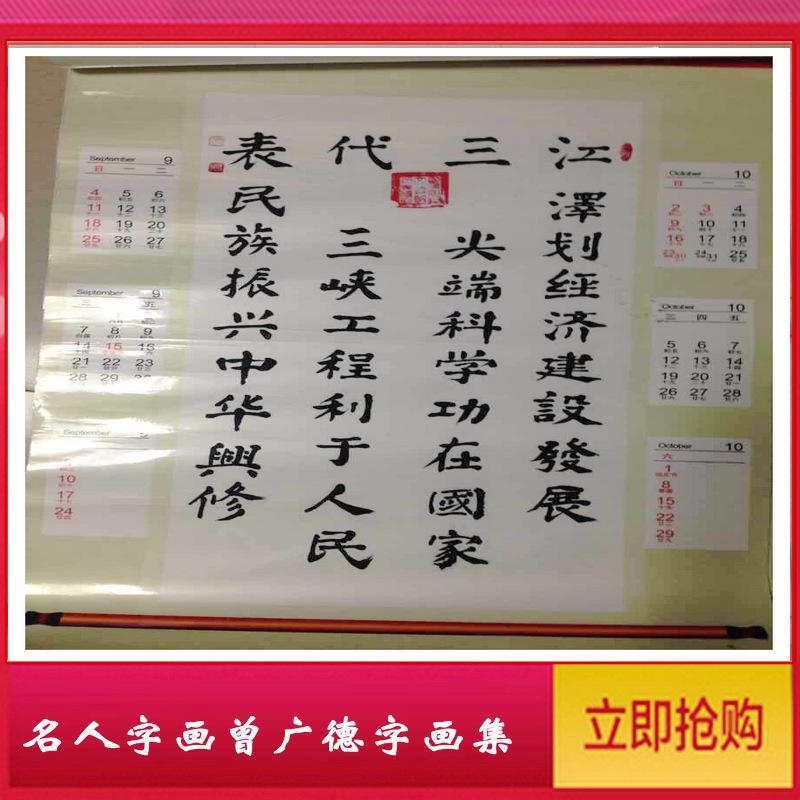 江澤划经济建設發展
三尖端科学功在國家
代三峡工程利于人民
表民族振兴中华興修
September 9
日 一 二
4 5 6
11 12 13
18 19 20
25 26 27
September 9
三 五
7 8 9
14 15 16
21 22 23
28 29
September
10
17
24
October 10
日 一 二
2 3 4
9 10 11
16 17 18
25
October 10
三 四 五
5 6 7
12 13 14
19 20 21
26 27 28
October 10
六
1
8
15
22
29
名人字画曾广德字画集
立即抢购